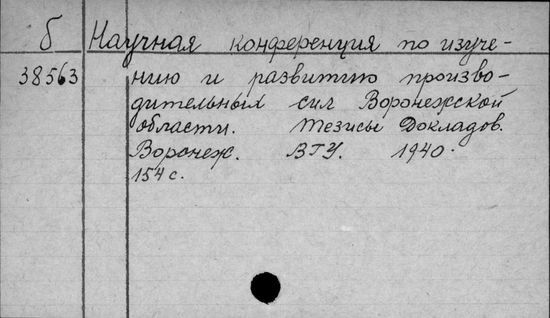 б Научная конференция по изуче-
38563 нию и развитию произво-
дительных сил Воронежской
области. Тезисы Докладов.
Воронеж. ВГУ. 1940.
154 с.